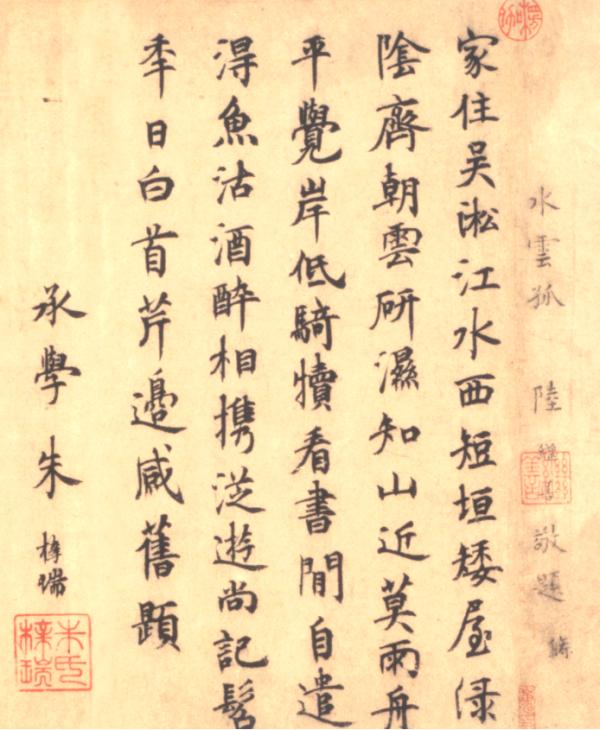 水雲孤 陸繼善敬題
家住吴淞江水西短垣矮屋渌
陰齊朝雲研濕知山近莫雨舟
平覺岸低騎犢看書閒自遣
淂魚沽酒醉相携従遊尚記髫
季日白首芹邉感舊題
承學朱橰瑞